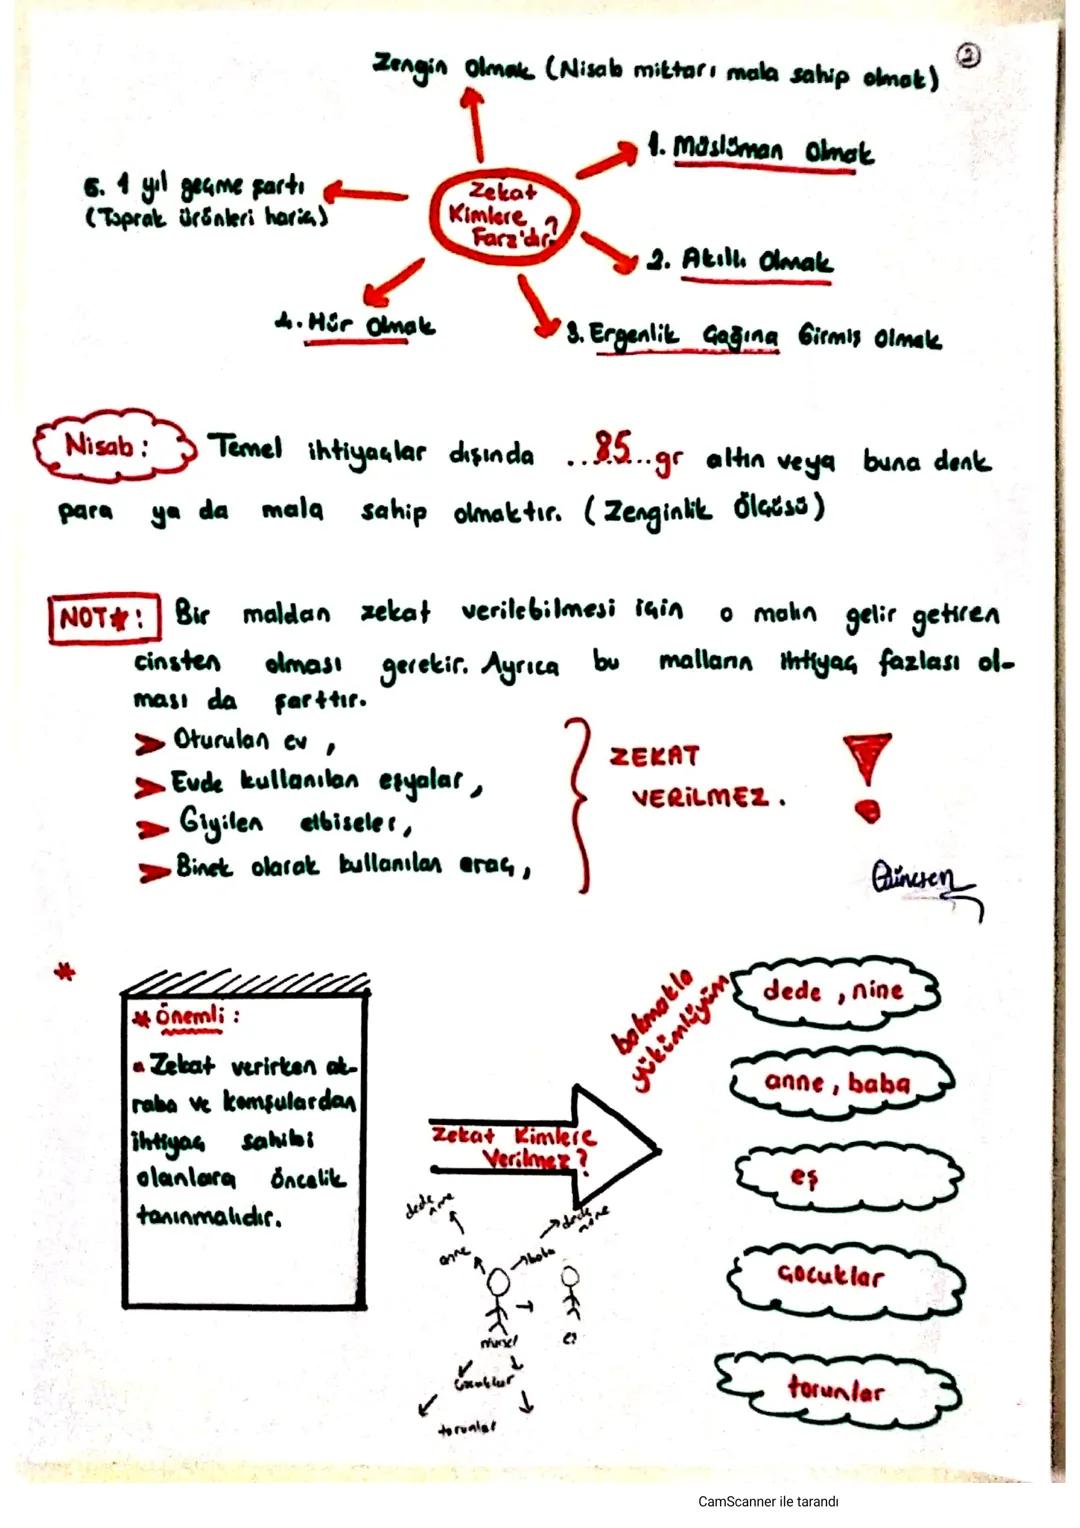 2
Zengin olmak (Nisab miktarı mala sahip olmak)
1. Müslüman Olmak
5. 1 yıl geçme şartı
(Toprak ürünleri hariç)
Zekat
Kimlere
Farz'dır?
2. Akıllı Olmak
4. Hür Olmak
3. Ergenlik Çağına Girmiş Olmak
Nisab: Temel ihtiyaçlar dışında ..85..gr altın veya buna denk
para ya da mala sahip olmaktır. (Zenginlik Ölçüsü)
NOT*: Bir maldan zekat verilebilmesi için o malın gelir getiren
cinsten olması gerekir. Ayrıca bu malların ihtiyaç fazlası ol-
ması da şarttır.
Oturulan ev,
Evde kullanılan eşyalar,
Giyilen elbiseler,
Binek olarak kullanılan araç,
ZEKAT
VERİLMEZ.
* Önemli:
Zekat verirken ak-
raba ve komşulardan
ihtiyaç sahibi
olanlara öncelik
tanınmalıdır.
bakmakla
yükümlüyüm
Zekat Kimlere
Verilmez?
dede, nine
anne, baba
eş
çocuklar
torunlar
dede nine
dede nine
anne
baba
eş
çocuklar
torunlar
CamScanner ile tarandı